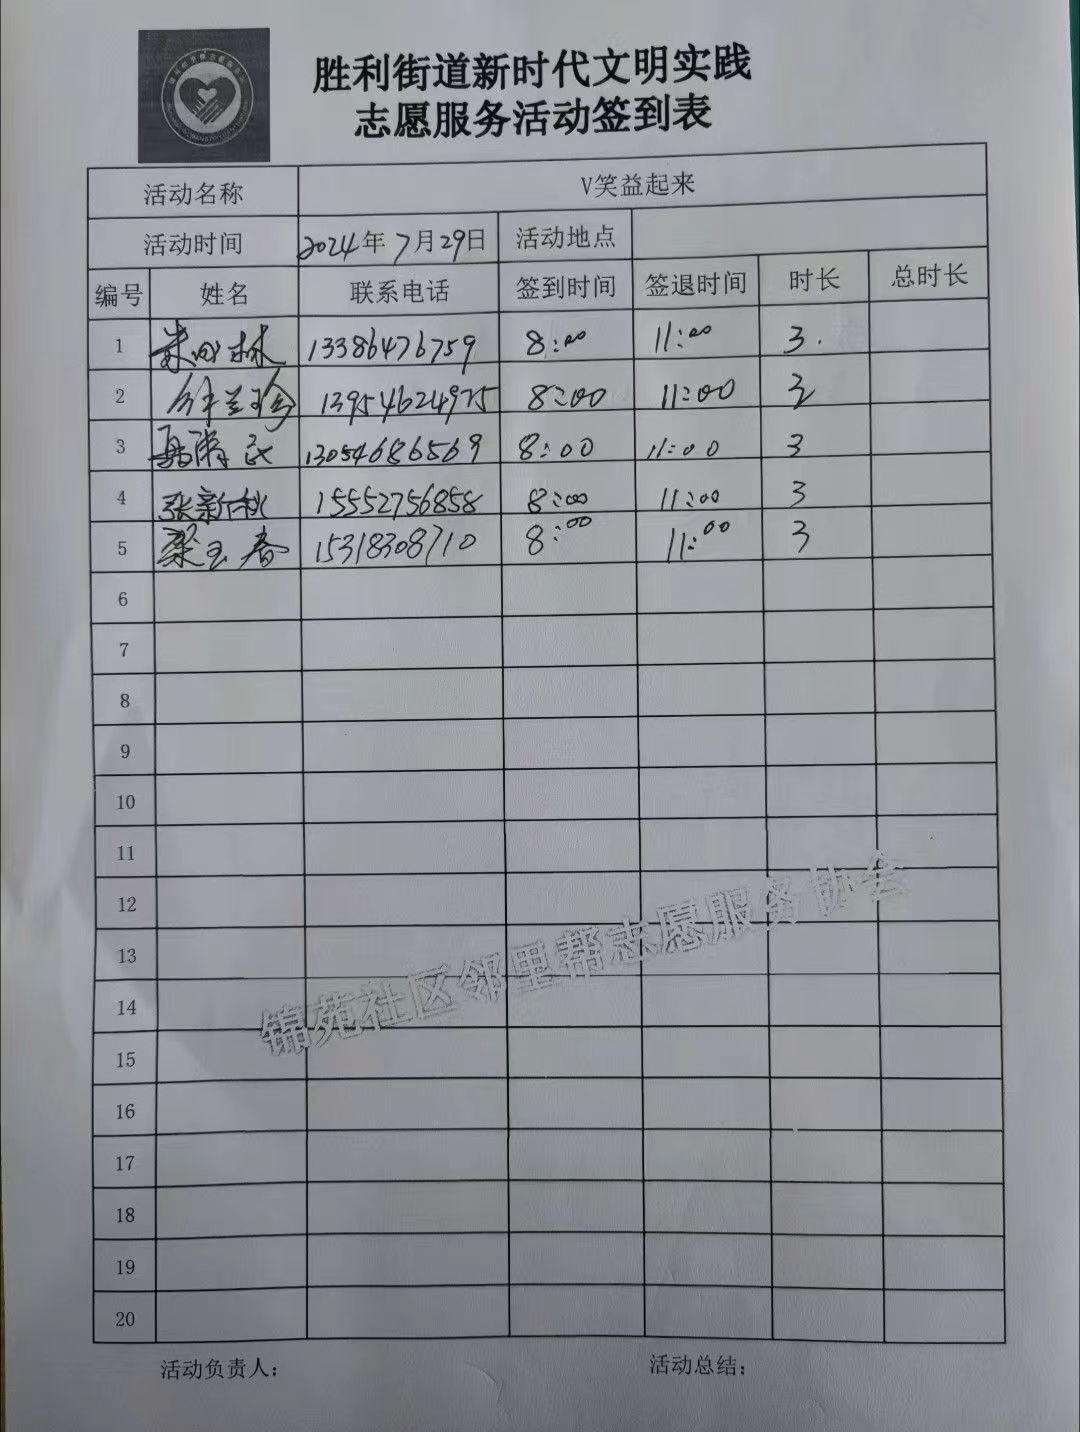 胜利街道新时代文明实践
志愿服务活动签到表
活动名称 V笑益起来
活动时间 2024年7月29日 活动地点
编号 姓名 联系电话 签到时间 签退时间 时长 总时长
1 林 13386476759 8:00 11:00 3.
2 13954624975 8:00 11:00 3
3 民 13054686569 8:00 11:00 3
4 张新秋 15552756858 8:00 11:00 3
5 梁玉春 15318308710 8:00 11:00 3
6
7
8
9
10
11
12
13
14
15
16
17
18
19
20
锦苑社区邻里帮志愿服务协会
活动负责人: 活动总结: